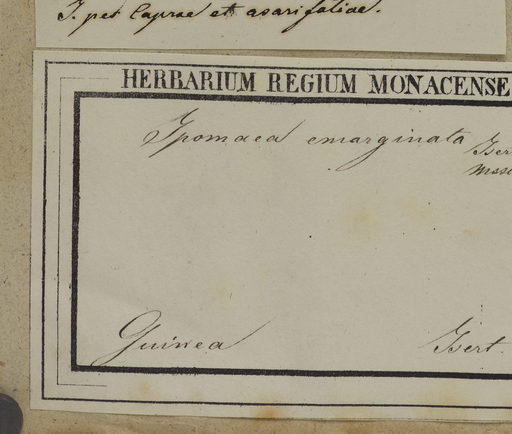 I. pes Caprae et asarifoliae.
HERBARIUM REGIUM MONACENSE
Ipomaea emarginata Isert
Guinea Isert.